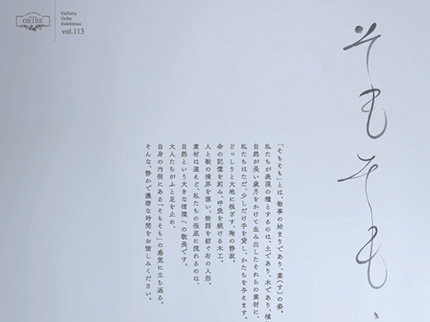 ORIBE
Galleria
Oribe
Exhibition
vol.113
そもそも、
「そもそも」とは、物事の始まりであり、素(す)の姿。
私たちが表現の種とするのは、土であり、木であり、植
自然が長い歳月をかけて生み出したそれらの素材に、
私たちはただ、少しだけ手を貸し、かたちを与えます。
どっしりと大地に根ざす、陶の静寂。
命の記憶を刻み、呼吸を続ける木工。
人と獣の境界を漂い、物語を紡ぐ布の人形。
素材は違えど、私たちの根底に流れるのは、
自然という大きな循環への敬畏です。
大人たちがふと足を止め、
自身の内側にある「そもそも」の感覚に立ち返る。
そんな、静かで濃密な時間をお愉しみください。